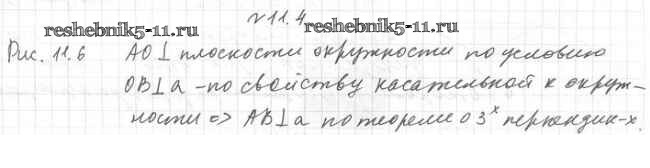 №11.4
reshebnik5-11.ru reshebnik5-11.ru
Рис. 11.6 АО⊥ плоскости окружности по условию
ОВ⊥а - по свойству касательной к окруж-
ности => АВ⊥а по теореме о 3ˣ перпендик-х.